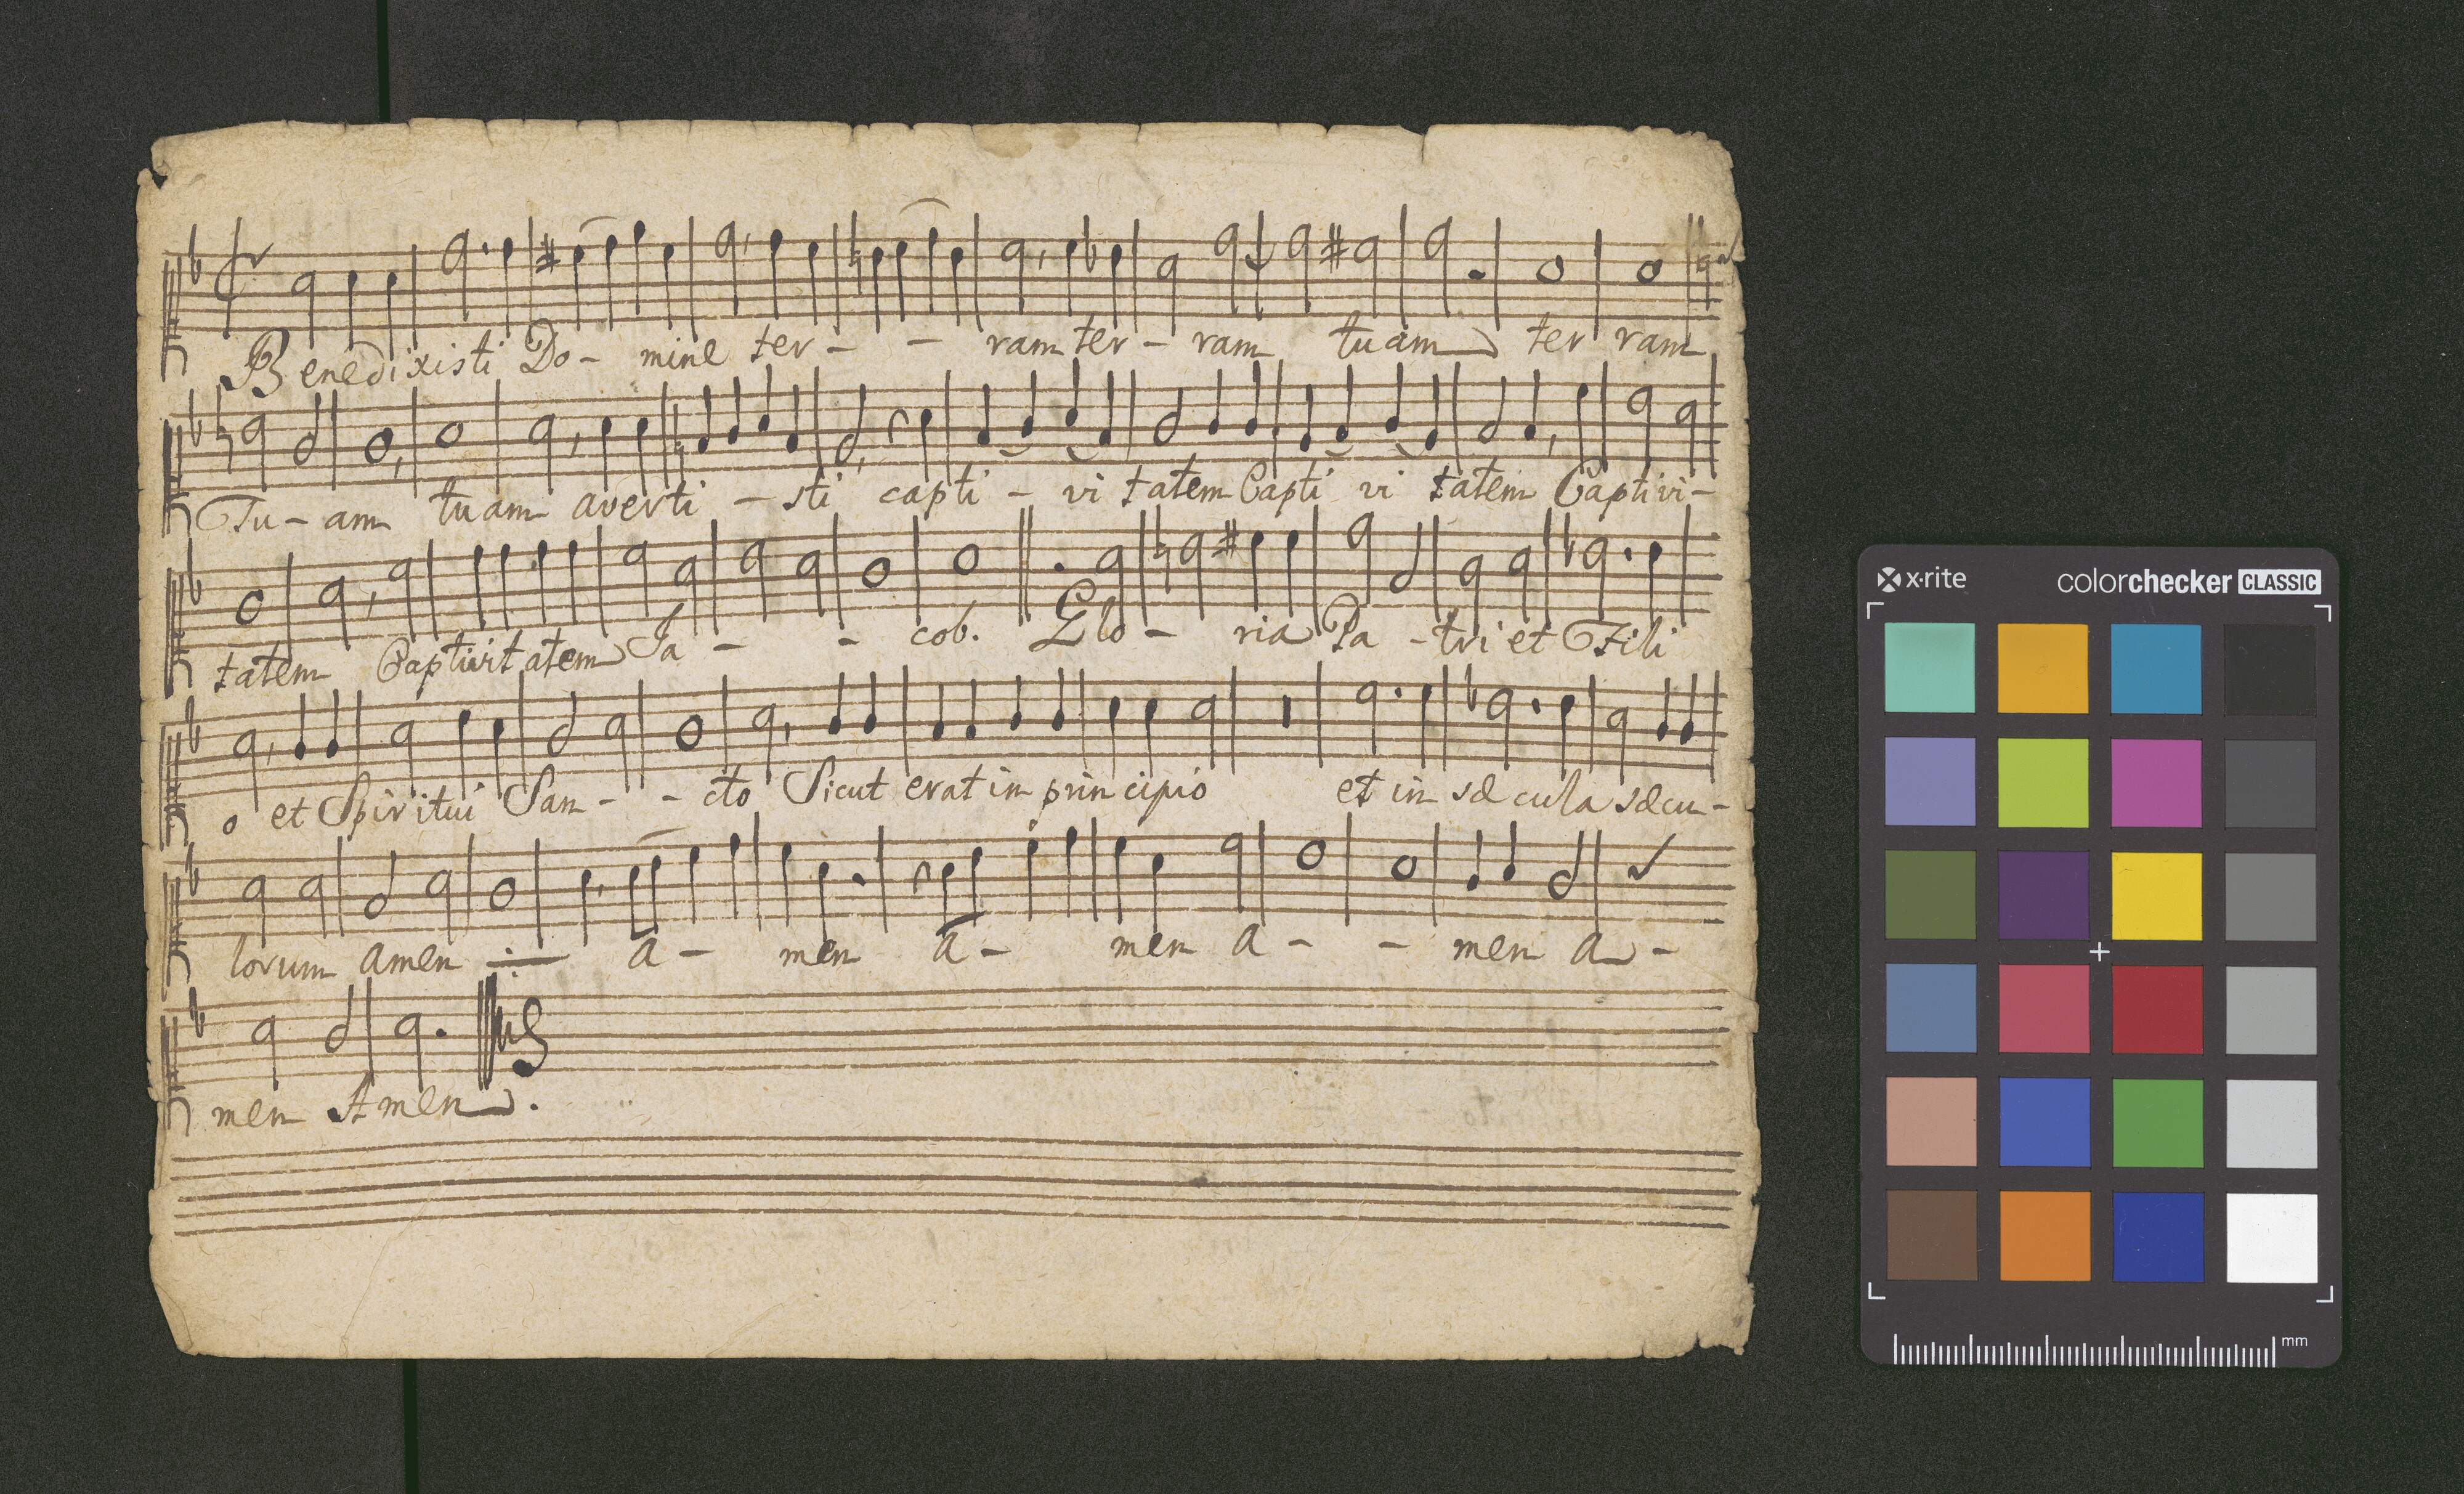 Benedixisti Do - mine ter - - ram ter - ram tuam ter ram
Tu - am tuam averti - sti capti - vi tatem Capti vi tatem Captivi -
tatem Captivitatem Ja - - cob. Glo - ria Pa - tri et Fili
o et Spiritui San - - cto Sicut erat in principio et in sæcula sæcu -
lorum amen a - men a - men a - - men a -
men Amen.
x·rite colorchecker CLASSIC
mm